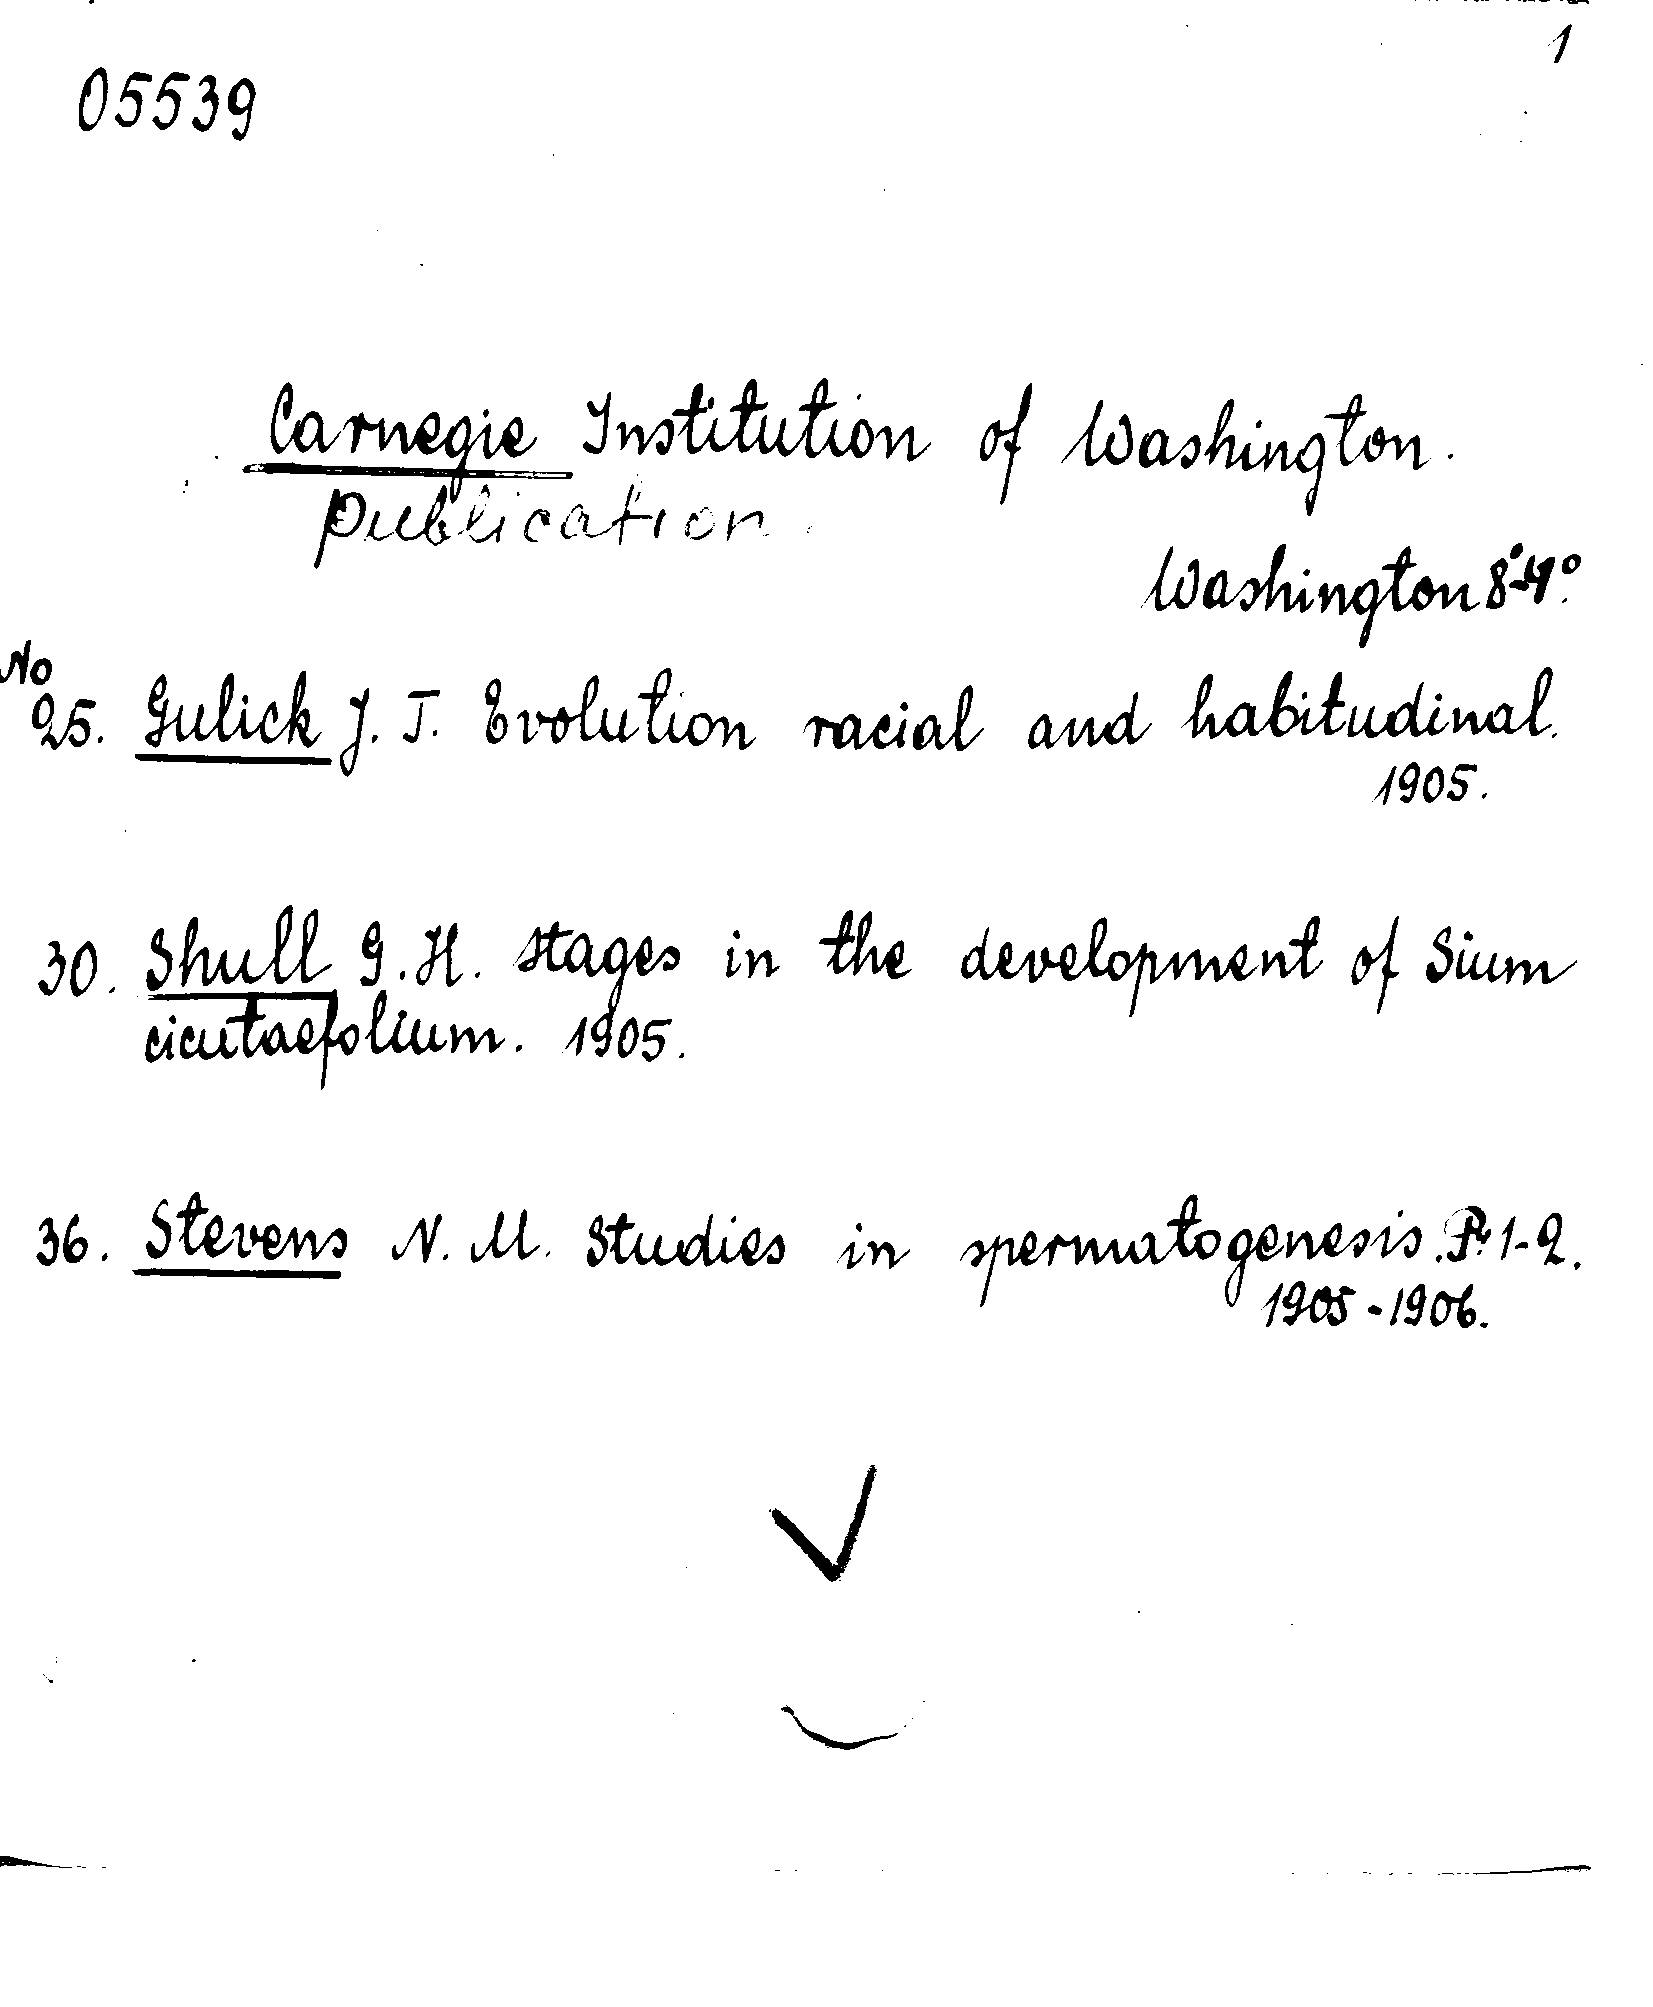 1
05539
Carnegie Institution of Washington.
Publication.
Washington 8°-4°.
No
25. Gulick J. T. Evolution racial and habitudinal.
1905.
30. Shull G. H. Stages in the development of Sium
cicutaefolium. 1905.
36. Stevens N. M. Studies in spermatogenesis. P. 1-2.
1905-1906.